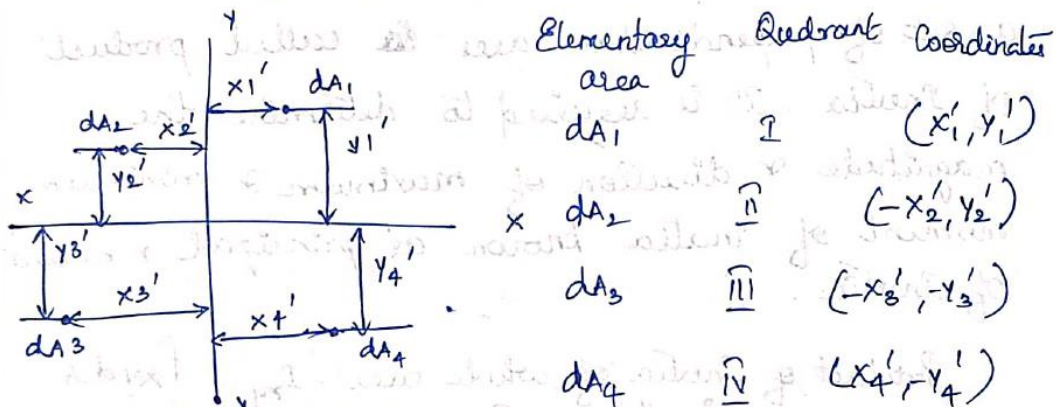 Y
x1' dA1
dA2 x2'
y1'
y2'
x x
y3'
y4'
x3'
x4'
dA3
dA4
Y
Elementary Quadrant Coordinates
area
dA1 I (x1', y1')
dA2 II (-x2', y2')
dA3 III (-x3', -y3')
dA4 IV (x4', -y4')